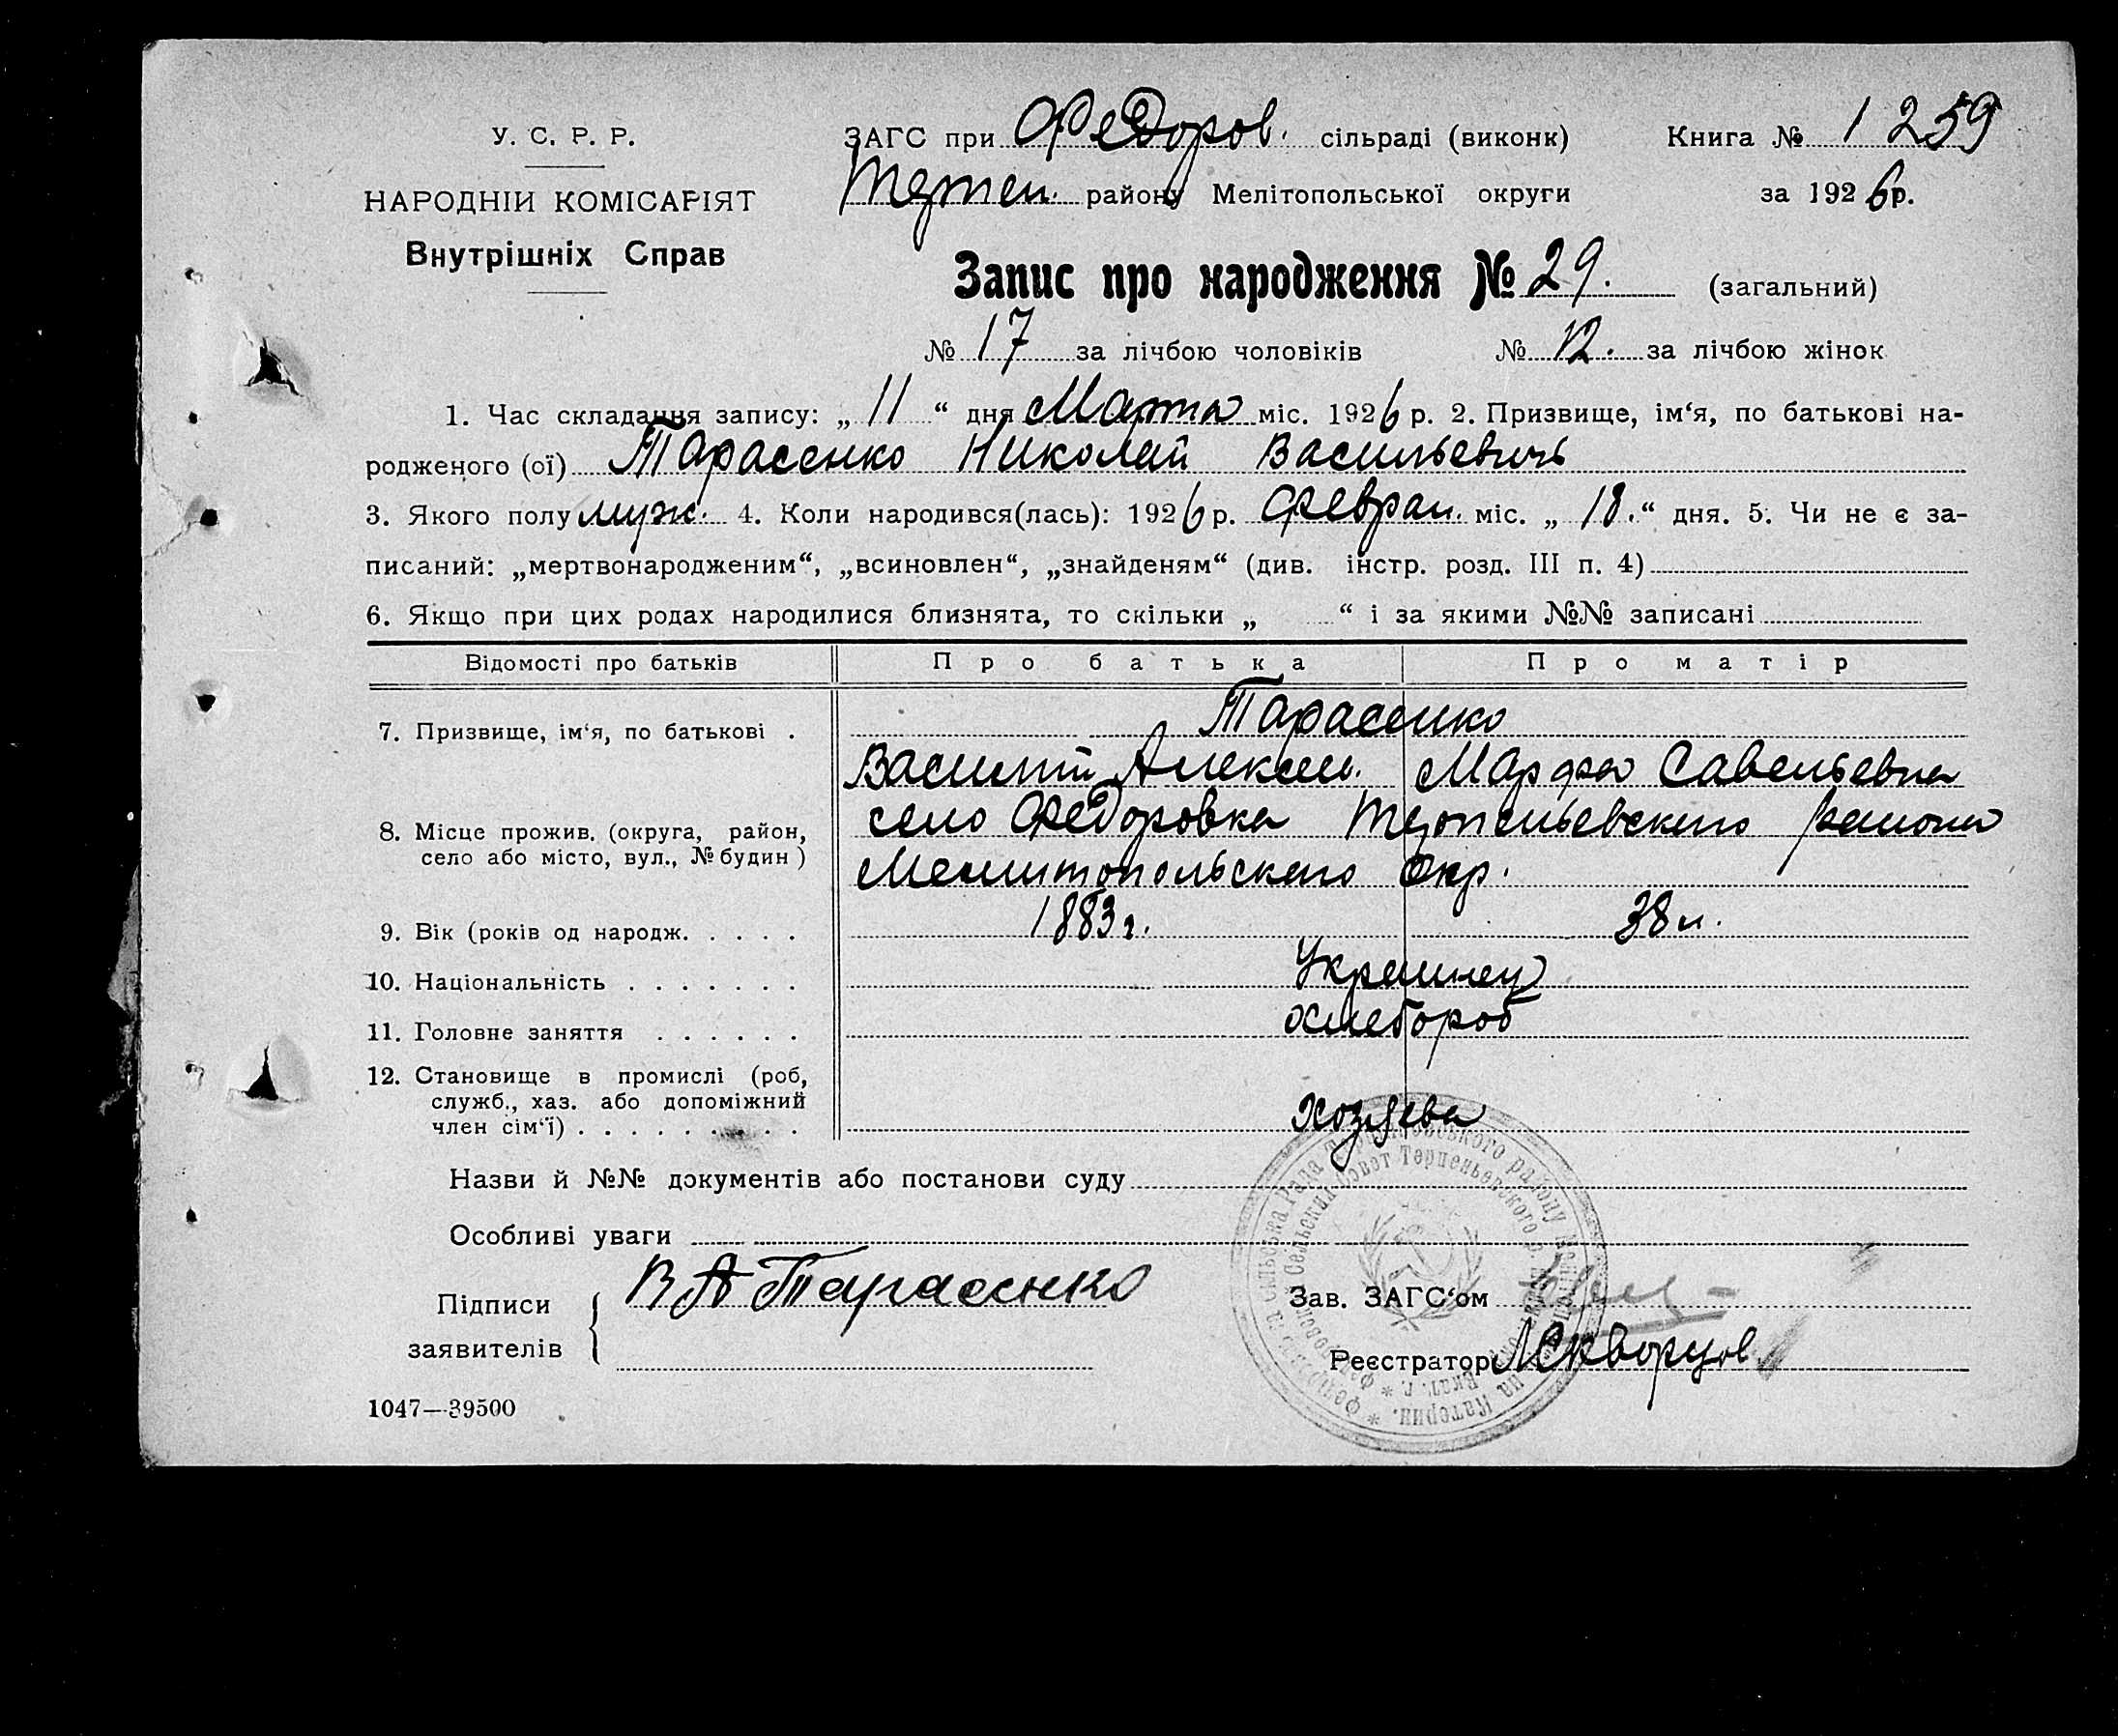 У. С. Р. Р.
НАРОДНІЙ КОМІСАРІЯТ
Внутрішніх Справ
ЗАГС при Федоров. сільраді (виконк)
Терпен. району Мелітопольської округи
Книга № 1 259
за 1926р.
Запис про народження № 29. (загальний)
№ 17 за лічбою чоловіків № 12. за лічбою жінок
1. Час складання запису: „ 11 “ дня Марта міс. 1926 р. 2. Призвище, ім‘я, по батькові на-
родженого (ої) Тарасенко Николай Васильевичь
3. Якого полу муж. 4. Коли народився(лась): 1926 р. Феврал. міс. „ 18. “ дня. 5. Чи не є за-
писаний: „мертвонародженим“, „всиновлен“, „знайденям“ (див. інстр. розд. III п. 4)
6. Якщо при цих родах народилися близнята, то скільки „ “ і за якими №№ записані
Відомості про батьків Про батька Про матір
7. Призвище, ім‘я, по батькові . Тарасенко
Василий Алексеев. Марфа Савельевна
8. Місце прожив. (округа, район,
село або місто, вул., № будин )
село Федоровка Терпеньевского района
Мелитопольского Окр.
9. Вік (років од народж. . . . . 1883 г. 38 л.
10. Національність . . . . . . . Украинец
11. Головне заняття . . . . . . Хлебороб
12. Становище в промислі (роб,
служб., хаз. або допоміжний
член сім‘ї) . . . . . . . . . Хозяева
Назви й №№ документів або постанови суду
Особливі уваги
Підписи
заявителів
В А Тарасенко
Зав. ЗАГС‘ом
Реєстратор Л Скворцов
1047—39500